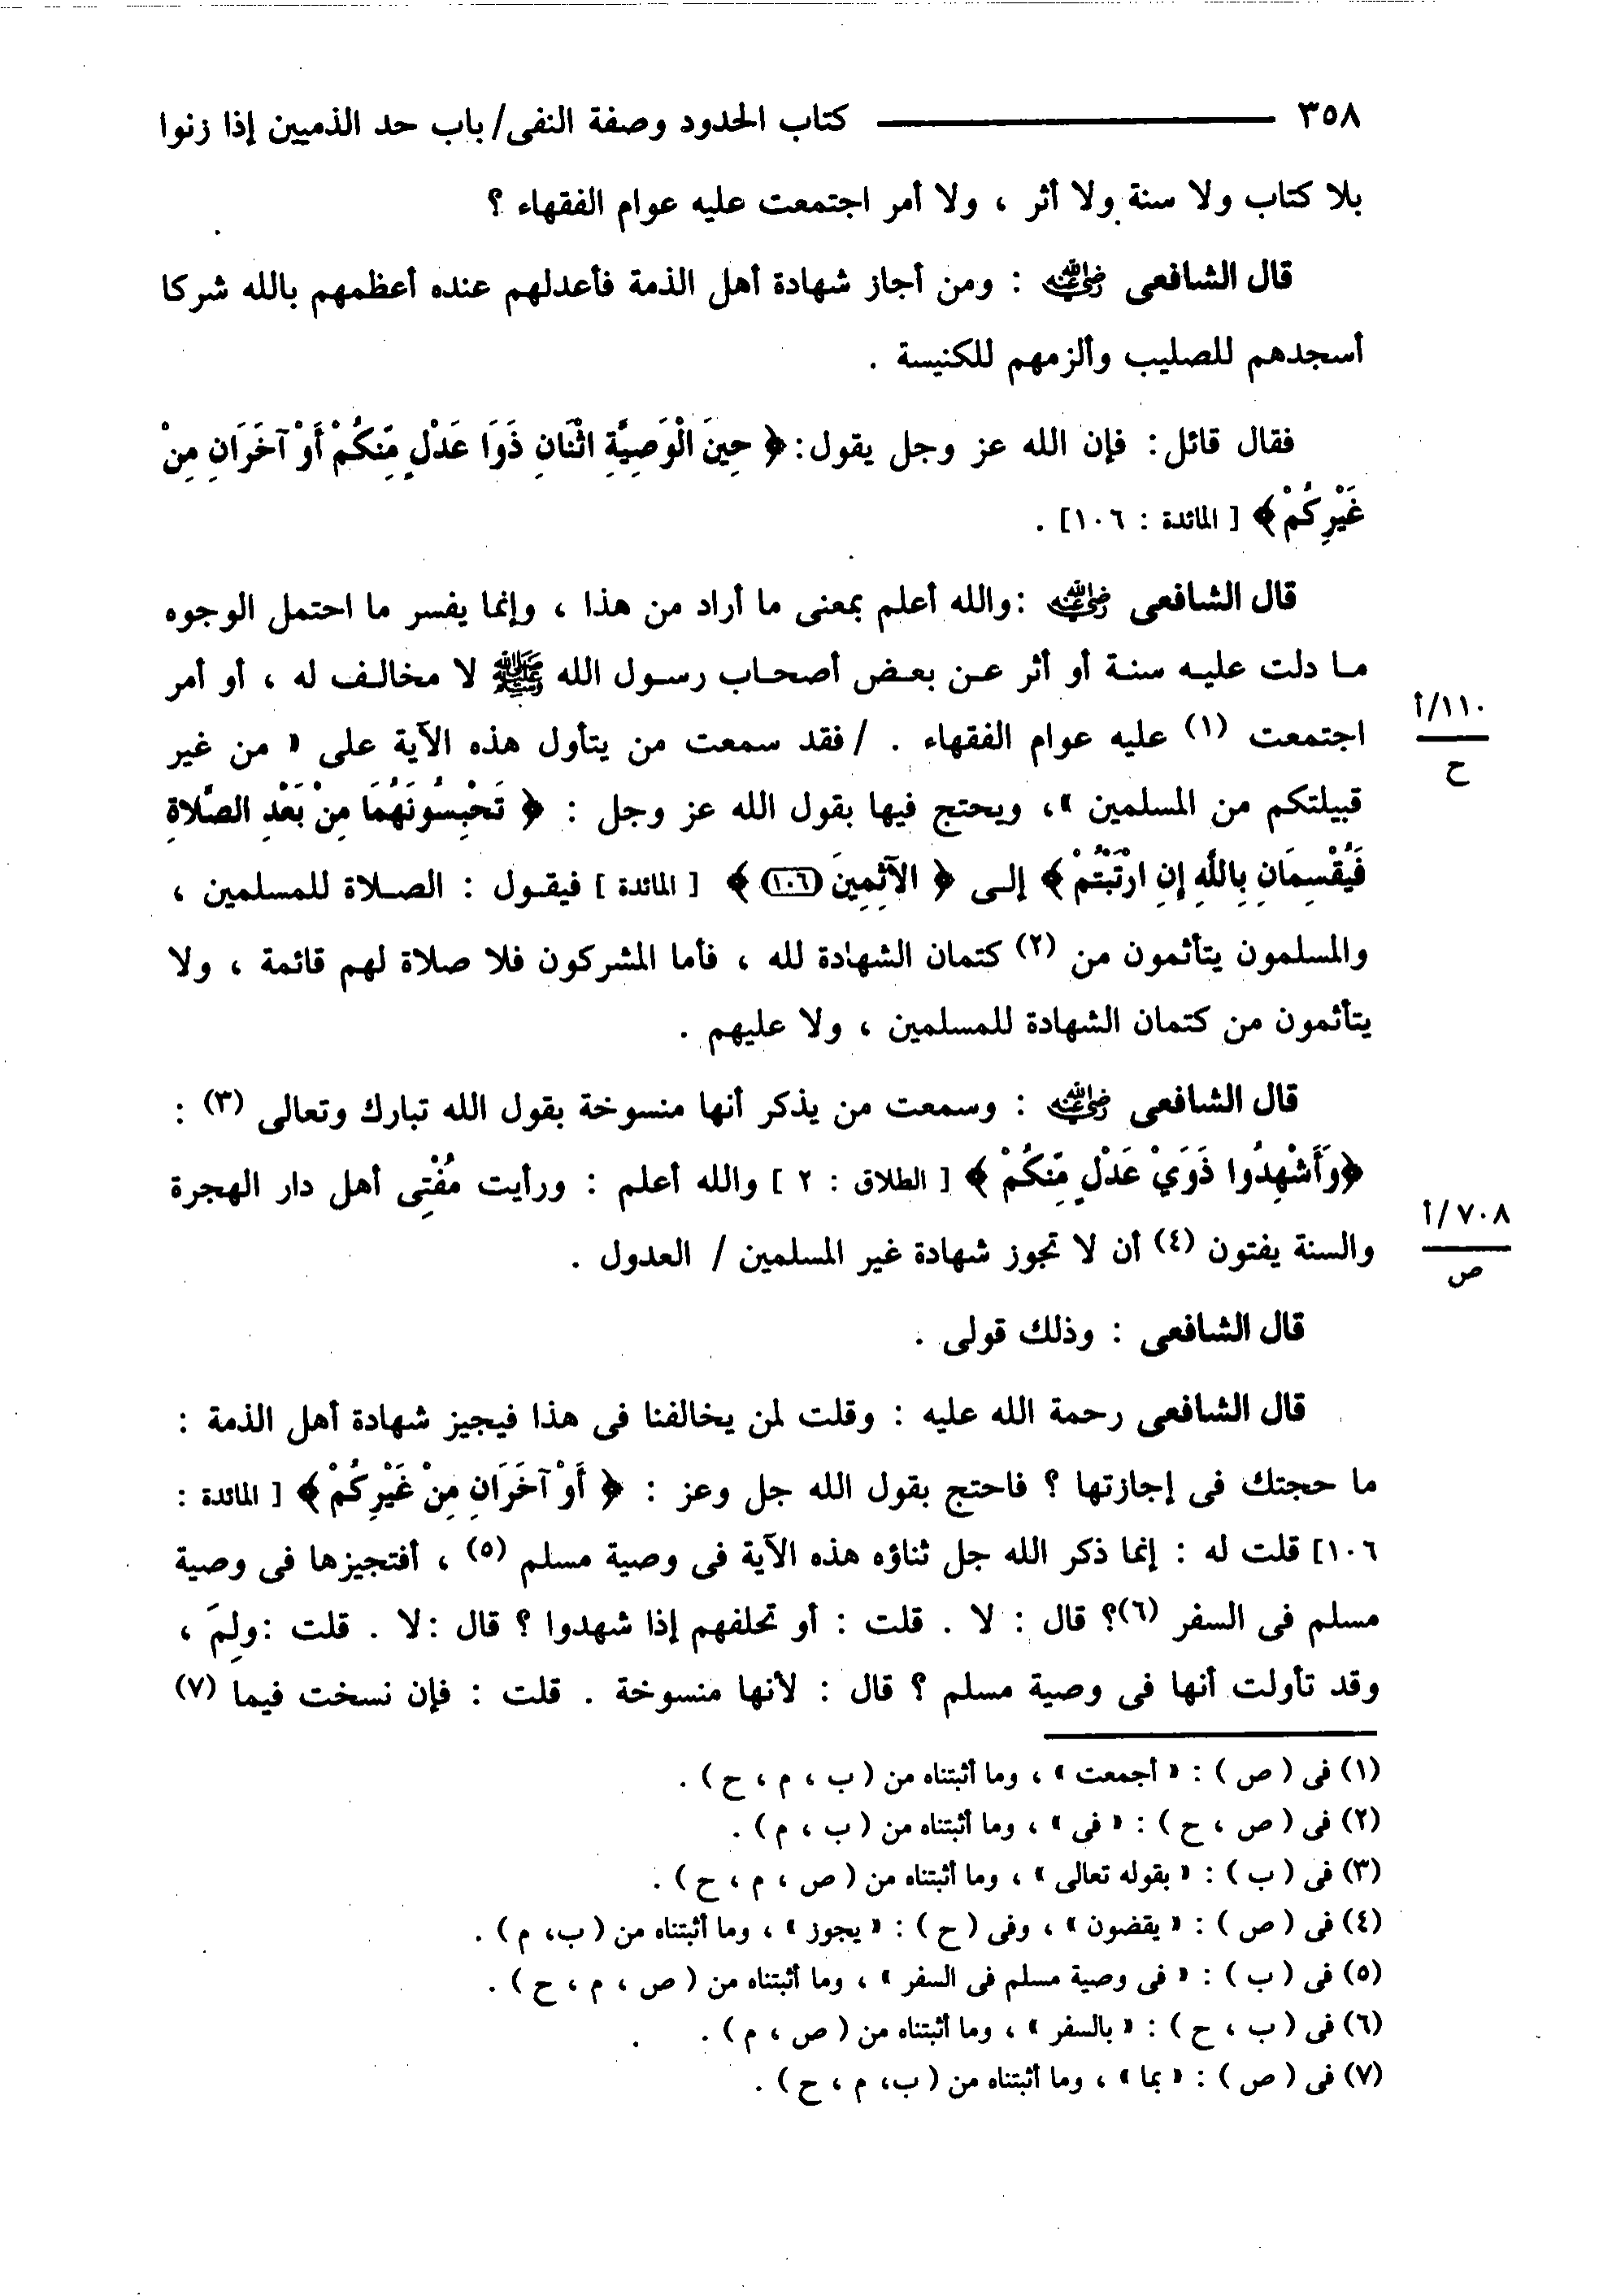 ٣٥٨ ـــــــ كتاب الحدود وصفة النفى/ باب حد الذميين إذا زنوا
بلا كتاب ولا سنة ولا أثر ، ولا أمر اجتمعت عليه عوام الفقهاء ؟
قال الشافعى رضي الله عنه : ومن أجاز شهادة أهل الذمة فأعدلهم عنده أعظمهم بالله شركا
أسجدهم للصليب وألزمهم للكنيسة .
فقال قائل: فإن الله عز وجل يقول: ﴿ حِينَ الْوَصِيَّةِ اثْنَانِ ذَوَا عَدْلٍ مِّنكُمْ أَوْ آخَرَانِ مِنْ
غَيْرِكُمْ ﴾ [ المائدة : ١٠٦] .
قال الشافعى رضي الله عنه :والله أعلم بمعنى ما أراد من هذا ، وإنما يفسر ما احتمل الوجوه
ما دلت عليه سنة أو أثر عن بعض أصحاب رسول الله ﷺ لا مخالف له ، أو أمر
اجتمعت (١) عليه عوام الفقهاء . / فقد سمعت من يتأول هذه الآية على « من غير
١١٠/أ
ح
قبيلتكم من المسلمين »، ويحتج فيها بقول الله عز وجل : ﴿ تَحْبِسُونَهُمَا مِنْ بَعْدِ الصَّلاةِ
فَيُقْسِمَانِ بِاللَّهِ إِنِ ارْتَبْتُمْ ﴾ إلى ﴿ الآثِمِينَ (١٠٦) ﴾ [ المائدة ] فيقول : الصلاة للمسلمين ،
والمسلمون يتأثمون من (٢) كتمان الشهادة لله ، فأما المشركون فلا صلاة لهم قائمة ، ولا
يتأثمون من كتمان الشهادة للمسلمين ، ولا عليهم .
قال الشافعى رضي الله عنه : وسمعت من يذكر أنها منسوخة بقول الله تبارك وتعالى (٣) :
﴿وَأَشْهِدُوا ذَوَيْ عَدْلٍ مِّنكُمْ ﴾ [ الطلاق : ٢ ] والله أعلم : ورأيت مُفْتِى أهل دار الهجرة
٧٠٨/أ
ص
والسنة يفتون (٤) أن لا تجوز شهادة غير المسلمين / العدول .
قال الشافعى : وذلك قولى .
قال الشافعى رحمة الله عليه : وقلت لمن يخالفنا فى هذا فيجيز شهادة أهل الذمة :
ما حجتك فى إجازتها ؟ فاحتج بقول الله جل وعز : ﴿ أَوْ آخَرَانِ مِنْ غَيْرِكُمْ ﴾ [ المائدة :
١٠٦] قلت له : إنما ذكر الله جل ثناؤه هذه الآية فى وصية مسلم (٥) ، أفتجيزها فى وصية
مسلم فى السفر (٦)؟ قال : لا . قلت : أو تحلفهم إذا شهدوا ؟ قال :لا . قلت :ولِمَ ،
وقد تأولت أنها فى وصية مسلم ؟ قال : لأنها منسوخة . قلت : فإن نسخت فيما (٧)
(١) فى ( ص ) : « أجمعت » ، وما أثبتناه من ( ب ، م ، ح ) .
(٢) فى ( ص ، ح ) : « فى » ، وما أثبتناه من ( ب ، م ) .
(٣) فى ( ب ) : « بقوله تعالى » ، وما أثبتناه من ( ص ، م ، ح ) .
(٤) فى ( ص ) : « يقضون » ، وفى ( ح ) : « يجوز » ، وما أثبتناه من ( ب، م ) .
(٥) فى ( ب ) : « فى وصية مسلم فى السفر » ، وما أثبتناه من ( ص ، م ، ح ) .
(٦) فى ( ب ، ح ) : « بالسفر » ، وما أثبتناه من ( ص ، م ) .
(٧) فى ( ص ) : « بما » ، وما أثبتناه من ( ب، م ، ح ) .